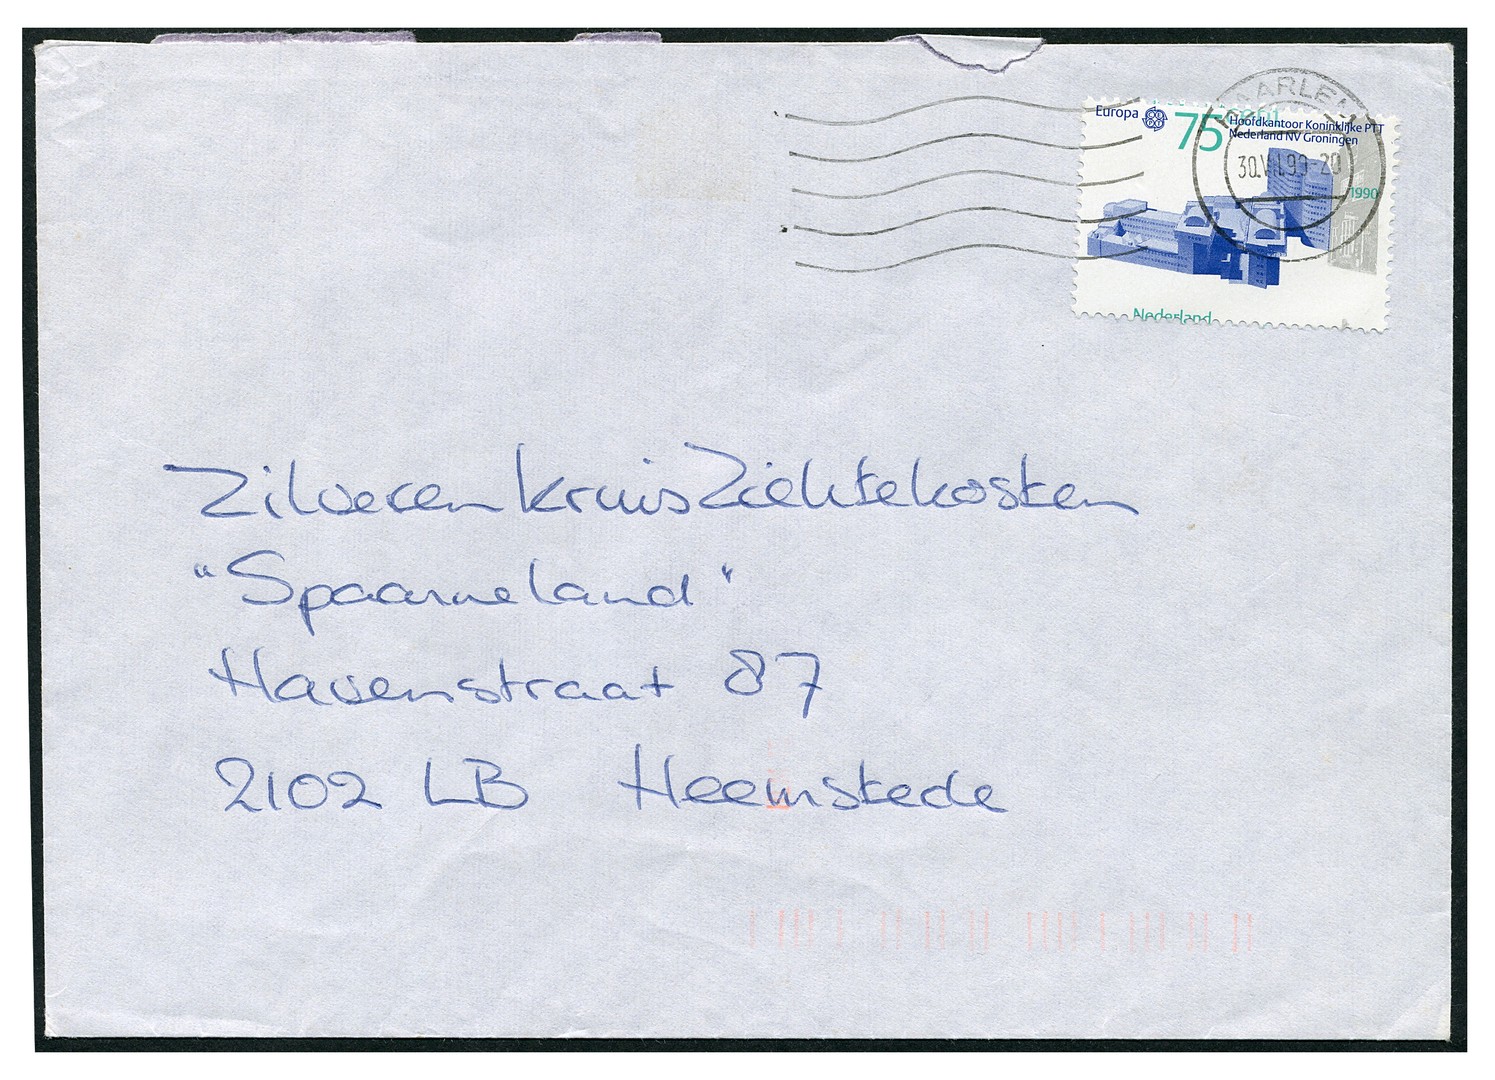 Europa
75 cent
Hoofdkantoor Koninklijke PTT
Nederland NV Groningen
1990
Nederland
HAARLEM
Zilveren kruis Ziektekosten
"Spaarneland"
Havenstraat 87
2102 LB Heemstede